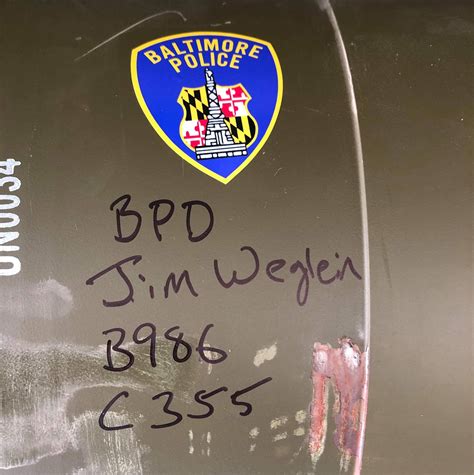 BALTIMORE
POLICE
UN0034
BPD
Jim Weglein
B986
C355